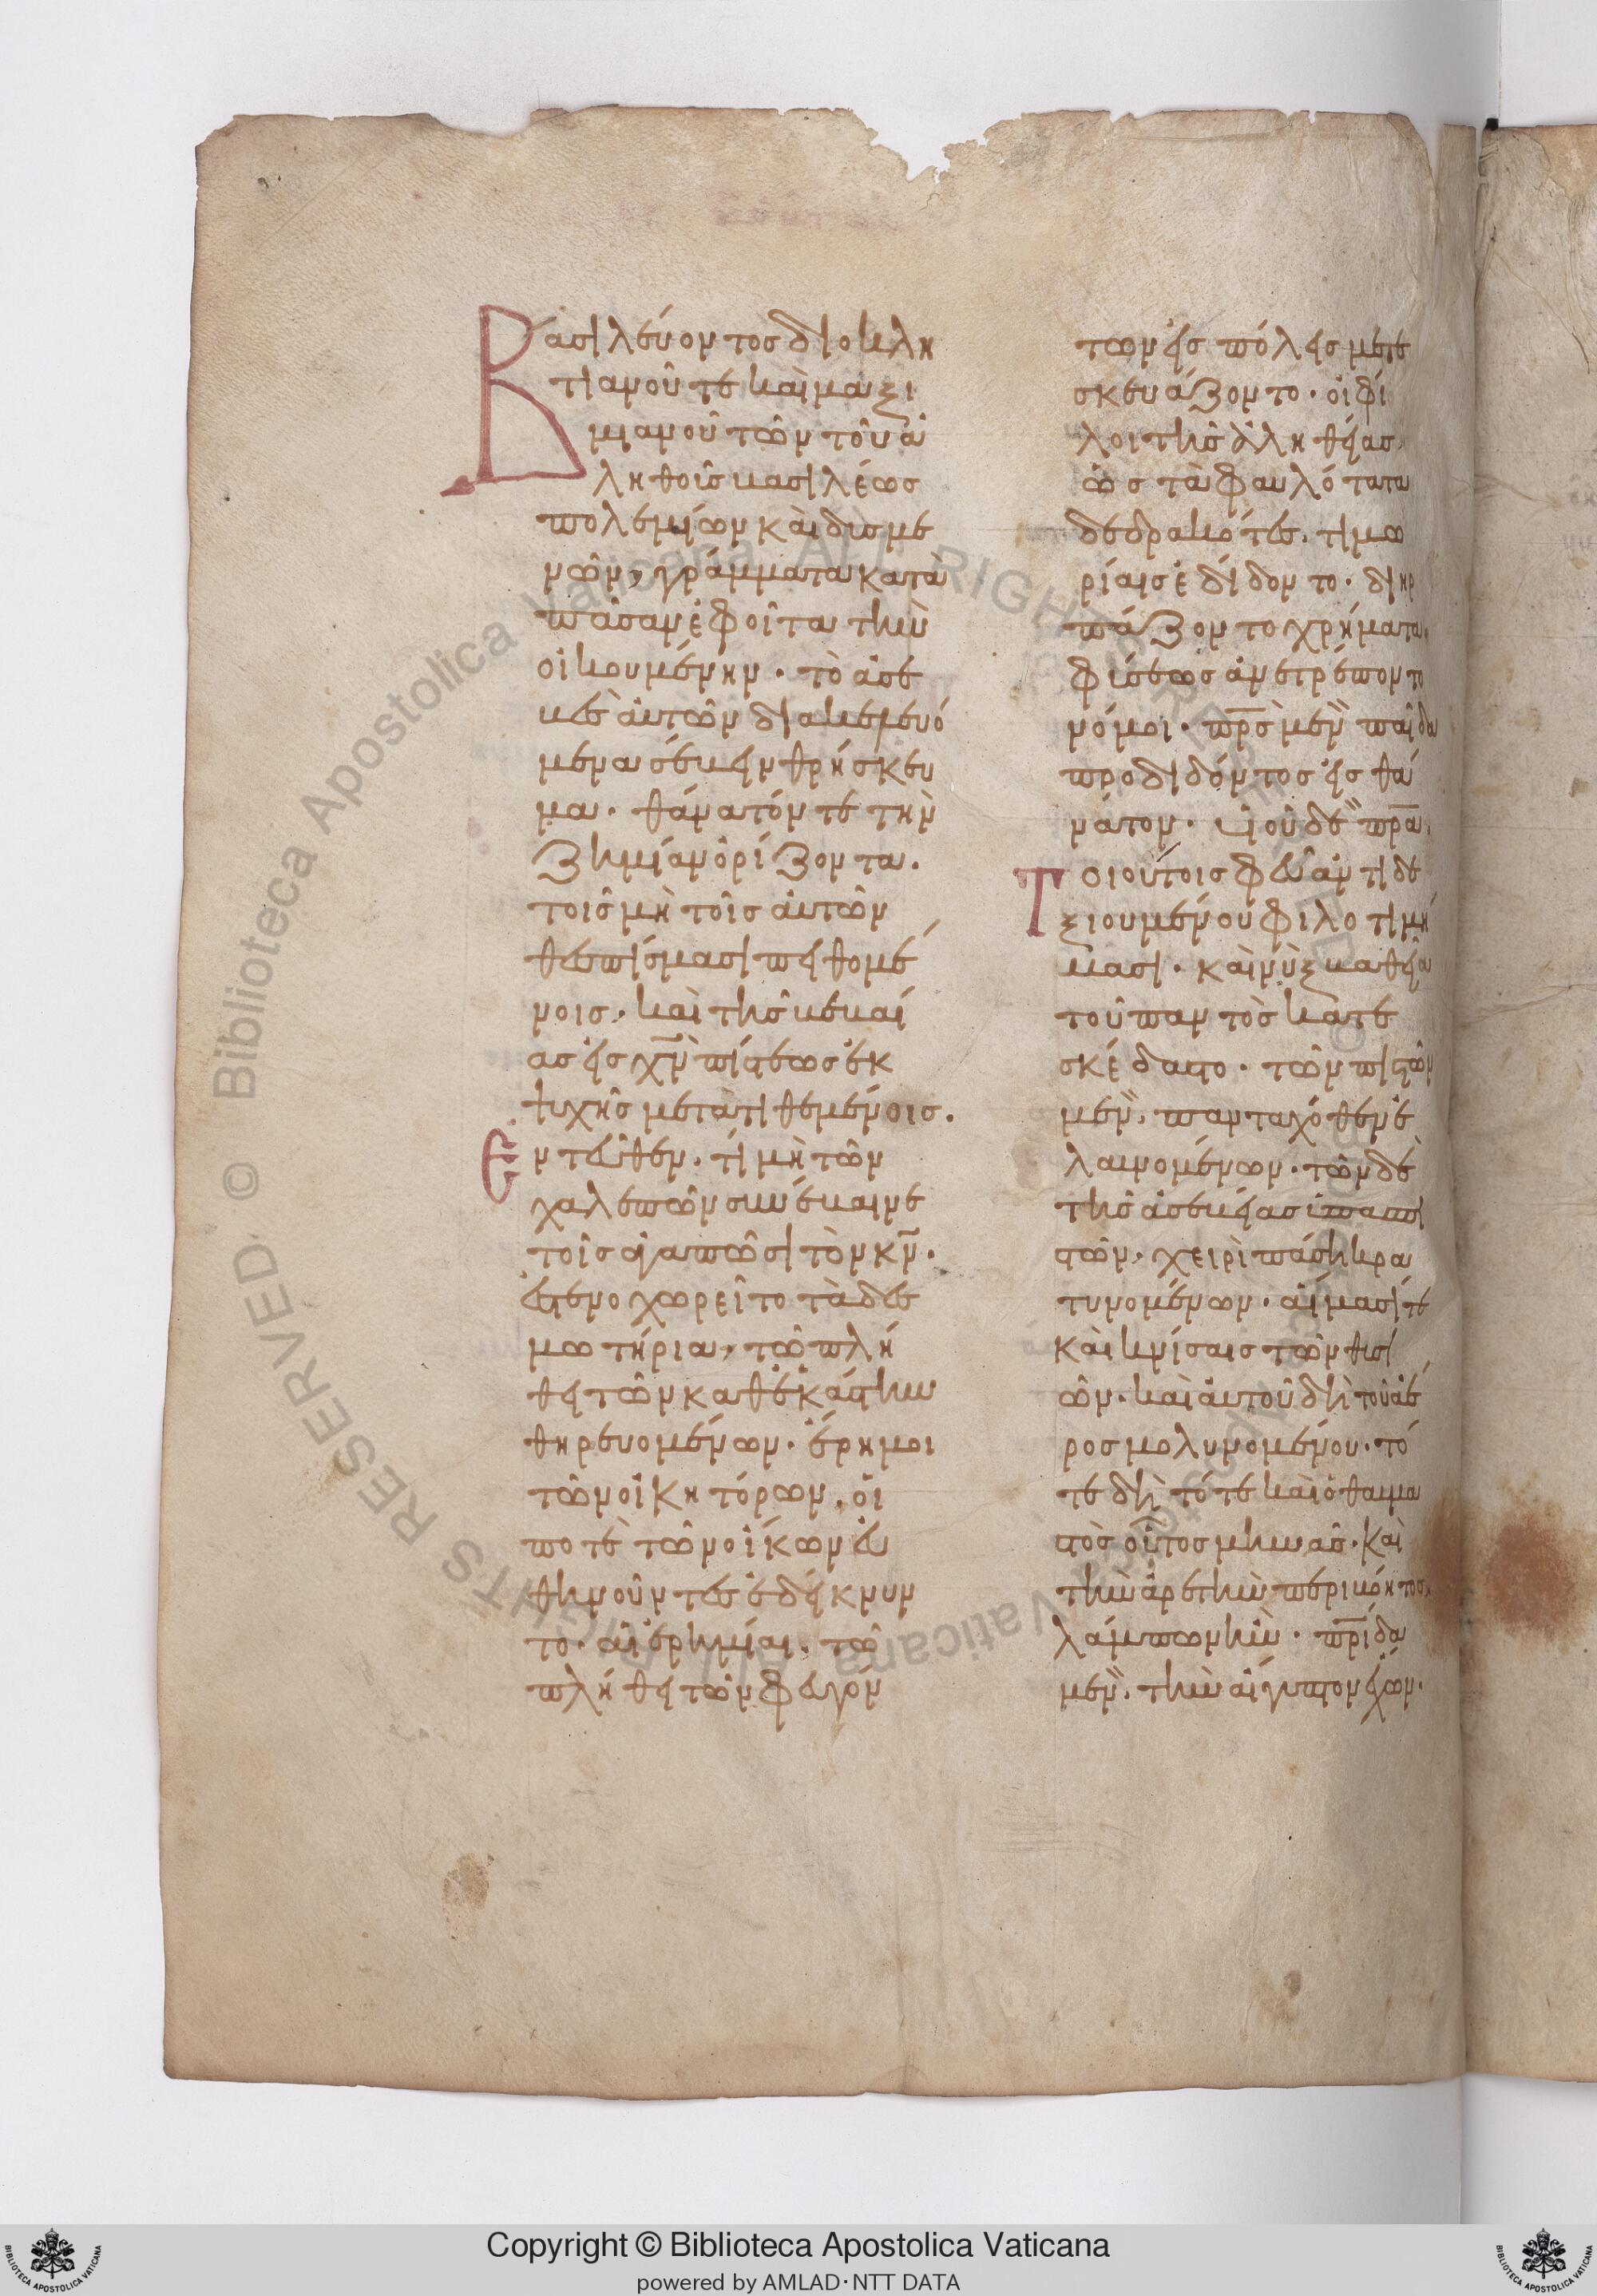 Βασιλεύοντος διοκλη
τιανοῦ τε καὶ μαξι
μιανοῦ τῶν τοῦ ἀ
ληθοῦς βασιλέως
πολεμίων καὶ δυσμε
νῶν, γράμματα κατὰ
πᾶσαν ἐφοίτα τὴν
οἰκουμένην· τὸ ἀσε
βὲς ἀυτῶν διακελευό
μενα σέβειν θρήσκευ
μα· θάνατόν τε τὴν
ζημίαν ὁρίζοντα·
τοῖς μὴ τοῖς ἀυτῶν
θεσπίσμασι πειθομέ
νοις· καὶ τῆς βεβαί
ας εἰς χν̅ πίστεως ἐκ
ψυχῆς μετατιθεμένοις.
Εντεῦθεν, τί μὴ τῶν
χαλεπῶν συνέβαινε
τοῖς ἀγαπῶσι τὸν κν̅·
ἐστενοχωρεῖτο τὰ δεσ
μωτήρια, τῶ πλή
θει τῶν καθ' ἑκάστην
θηρευομένων· ἔρημοι
τῶν οἰκητόρων, οἱ
ποτὲ τῶν οἴκων εὐ
θηνοῦντες ἐδείκνυν
το· αἱ ἐρημίαι, τῶ
πλήθει τῶν φευγόν
των εἰς πόλεις μετε
σκευάζοντο· οἱ φί
λοι τῆς ἀληθείας,
ὡς τὰ φαυλότατα
δεδρακότες, τιμω
ρίαις ἐδίδοντο· διηρ
πάζοντο χρήματα·
φύσεως ἀνετρέποντο
νόμοι· πρ̅ς μὲν παῖδα
προδιδόντος εἰς θά
νατον· υἱοῦ δὲ πρ̅α·
Τοιούτοις φεῦ ἀντιδε
ξιουμένου φιλοτιμή
μασι· καὶ νὺξ βαθεῖα
τοῦ παντὸς κατε
σκέδαστο· τῶν πιστῶν
μὲν, πανταχόθεν ἐ
λαυνομένων· τῶν δὲ
τῆς ἀσεβείας ὑπασπι
στῶν, χειρὶ πάση κρα
τυνομένων· αἵμασί τε
καὶ κνίσαις τῶν θυσι
ῶν· καὶ ἀυτοῦ δὴ τοῦ ἀέ
ρος μολυνομένου· τό
τε δὴ τότε καὶ ὁ θαυμα
στὸς οὗτος μηνᾶς· καὶ
τὴν ἀρετὴν περιβόητος,
λάμπων ἦν· πρ̅ίδα
μὲν, τὴν αἴγυπτον ἔχων·
Copyright © Biblioteca Apostolica Vaticana
powered by AMLAD·NTT DATA